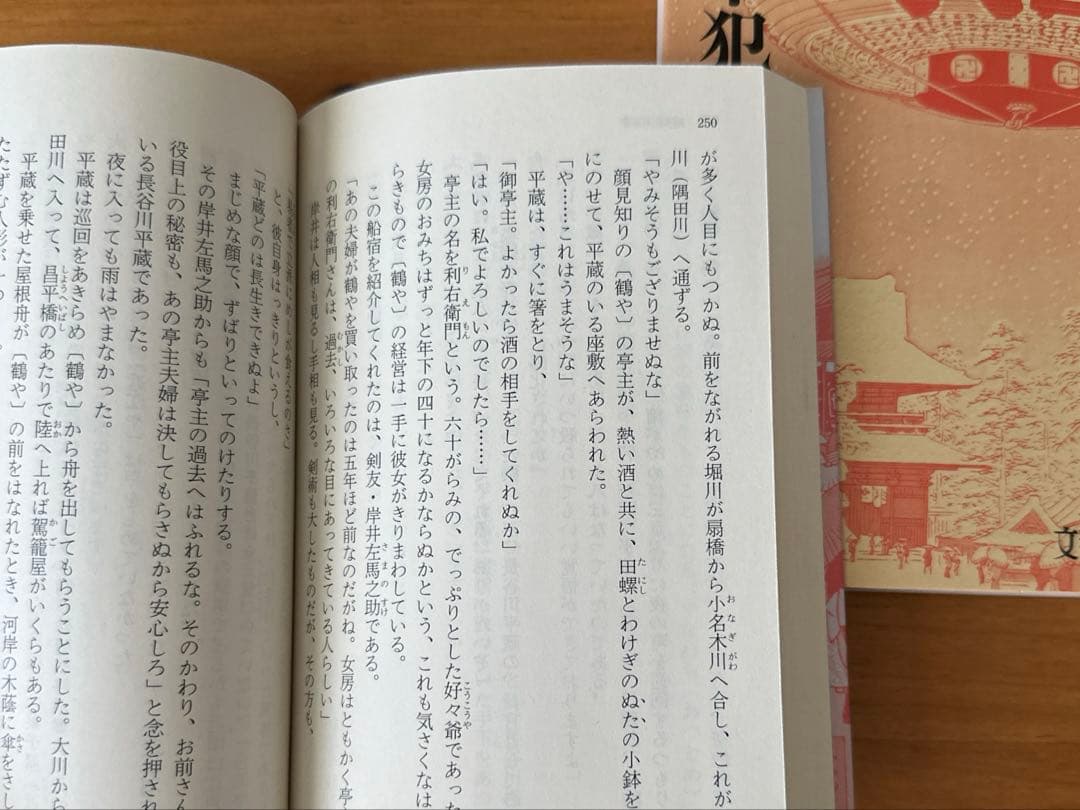 250
が多く人目にもつかぬ。前をながれる堀川が扇橋から小名木川へ合し、これが
川（隅田川）へ通ずる。
「やみそうもござりませぬな」
顔見知りの〔鶴や〕の亭主が、熱い酒と共に、田螺とわけぎのぬたの小鉢を
にのせて、平蔵のいる座敷へあらわれた。
「や……これはうまそうな」
平蔵は、すぐに箸をとり、
「御亭主。よかったら酒の相手をしてくれぬか」
「はい。私でよろしいのでしたら……」
亭主の名を利右衛門という。六十がらみの、でっぷりとした好々爺であった
女房のおみちはずっと年下の四十になるかならぬかという、これも気さくなは
らきもので〔鶴や〕の経営は一手に彼女がきりまわしている。
この船宿を紹介してくれたのは、剣友・岸井左馬之助である。
「あの夫婦が鶴やを買い取ったのは五年ほど前なのだがね。女房はともかく亭
の利右衛門さんは、過去、いろいろな目にあってきている人らしい」
岸井は人相も見るし手相も見る。剣術も大したものだが、その方も、
めしが食えるのさ」
と、彼自身はっきりというし、
「平蔵どのは長生きできぬよ」
まじめな顔で、ずばりといってのけたりする。
その岸井左馬之助からも「亭主の過去へはふれるな。そのかわり、お前さん
役目上の秘密も、あの亭主夫婦は決してもらさぬから安心しろ」と念を押され
いる長谷川平蔵であった。
夜に入っても雨はやまなかった。
平蔵は巡回をあきらめ〔鶴や〕から舟を出してもらうことにした。大川から
田川へ入って、昌平橋のあたりで陸へ上れば駕籠屋がいくらもある。
平蔵を乗せた屋根舟が〔鶴や〕の前をはなれたとき、河岸の木蔭に傘をさし
たたずむ人影が
犯
文